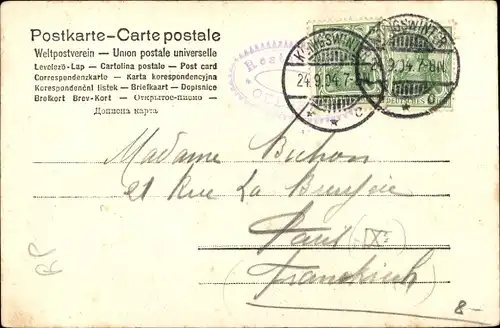 Postkarte-Carte postale
Weltpostverein - Union postale universelle
Levelező-Lap - Cartolina postale - Post card
Correspondenzkarte - Karta korespondencyjna
Korespondenční lístek - Briefkaart - Dopisnice
Brefkort Brev-Kort - Открытое-письмо -
Дописна карта
KÖNIGSWINTER
24.9.04.7-
* * c
KÖNIGSWINTER
9.04.7-8N
c
Madame
21 Rue La
(IX)
(Frankreich)
8-